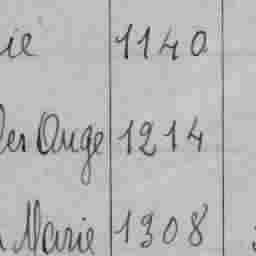 ie 1140
des Ange 1214
Marie 1308